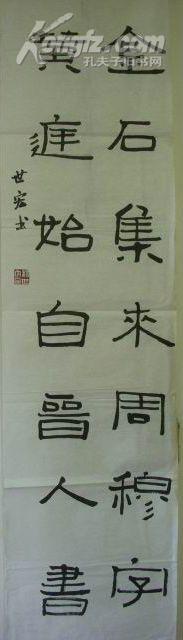 金石集来周穆字
黄庭始自晋人書
世宏书
Kongfz.com
孔夫子旧书网